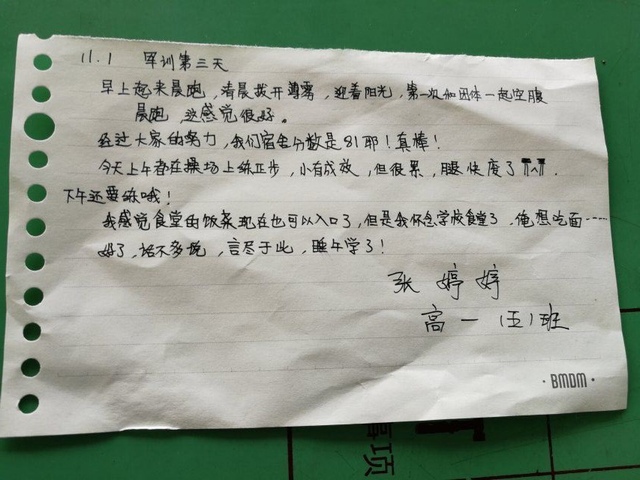 11.1 军训第三天
早上起来晨跑，清晨拨开薄雾，迎着阳光，第一次和团体一起空腹
晨跑，这感觉很好。
经过大家的努力，我们宿舍分数是81耶！真棒！
今天上午都在操场上练正步，小有成效，但很累，腿快废了╥^╥.
下午还要练哦！
我感觉食堂的饭菜现在也可以入口了，但是我怀念学校食堂了，俺想吃面……
好了，话不多说，言尽于此，睡午学了！
张婷婷
高一（五）班
·BMDM·
项